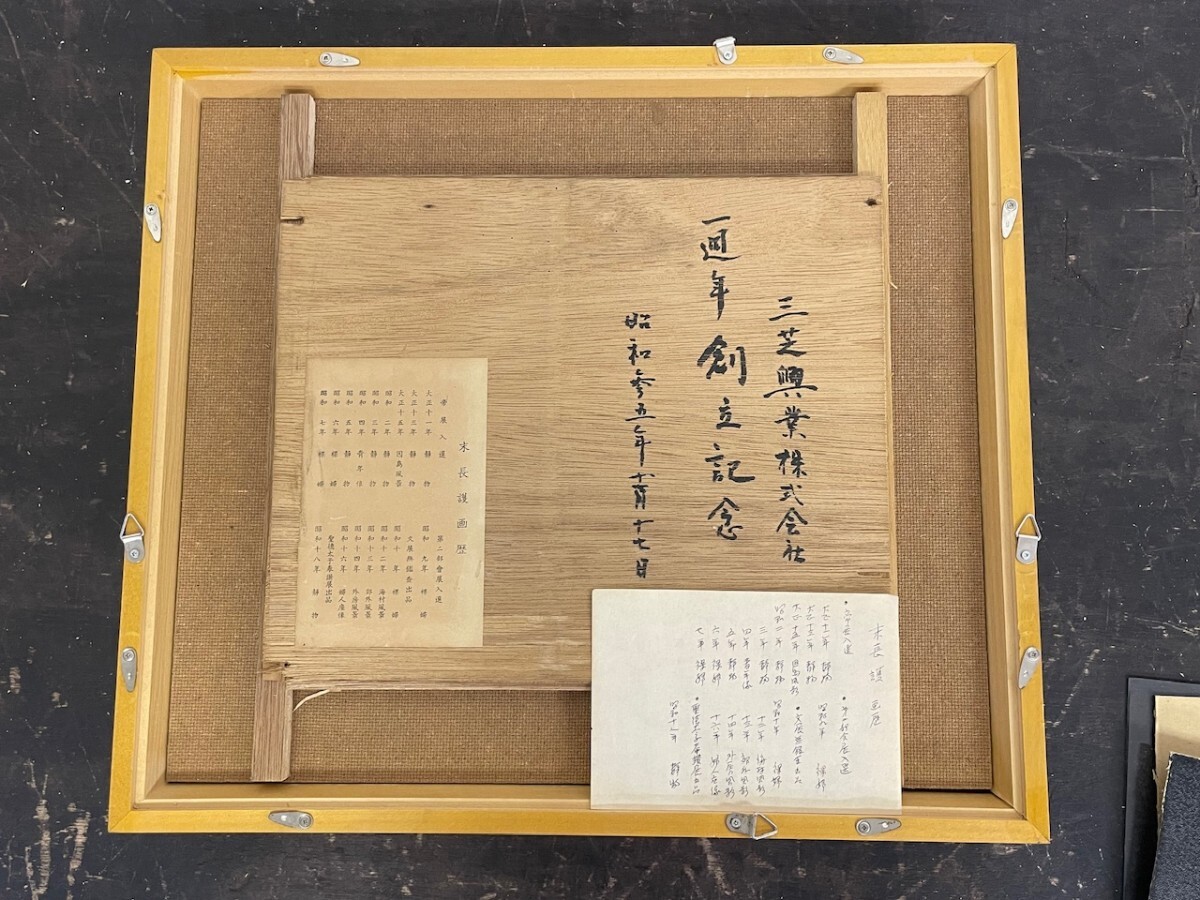 三芝興業株式会社
一週年創立記念
昭和参五年十一月十七日
末長護画歴
帝展入選
大正十一年 静物
大正十三年 静物
大正十五年 因島風景
昭和二年 静物
昭和三年 静物
昭和四年 青年像
昭和五年 静物
昭和六年 裸婦
昭和七年 裸婦
第二部會展入選
昭和九年 裸婦
文展無鑑査出品
昭和十年 裸婦
昭和十二年 海村風景
昭和十三年 郊外風景
昭和十四年 外房風景
昭和十六年 婦人座像
聖徳太子奉讃展出品
昭和十八年 静物
末長護画歴
・帝展入選
大正十一年 静物
大正十三年 静物
大正十五年 因島風景
昭和二年 静物
三年 静物
四年 青年像
五年 静物
六年 裸婦
七年 裸婦
・第二部会展入選
昭和九年 裸婦
・文展無鑑査出品
昭和十年 裸婦
十二年 海村風景
十三年 郊外風景
十四年 外房風景
十六年 婦人座像
・聖徳太子奉讃展出品
昭和十八年 静物